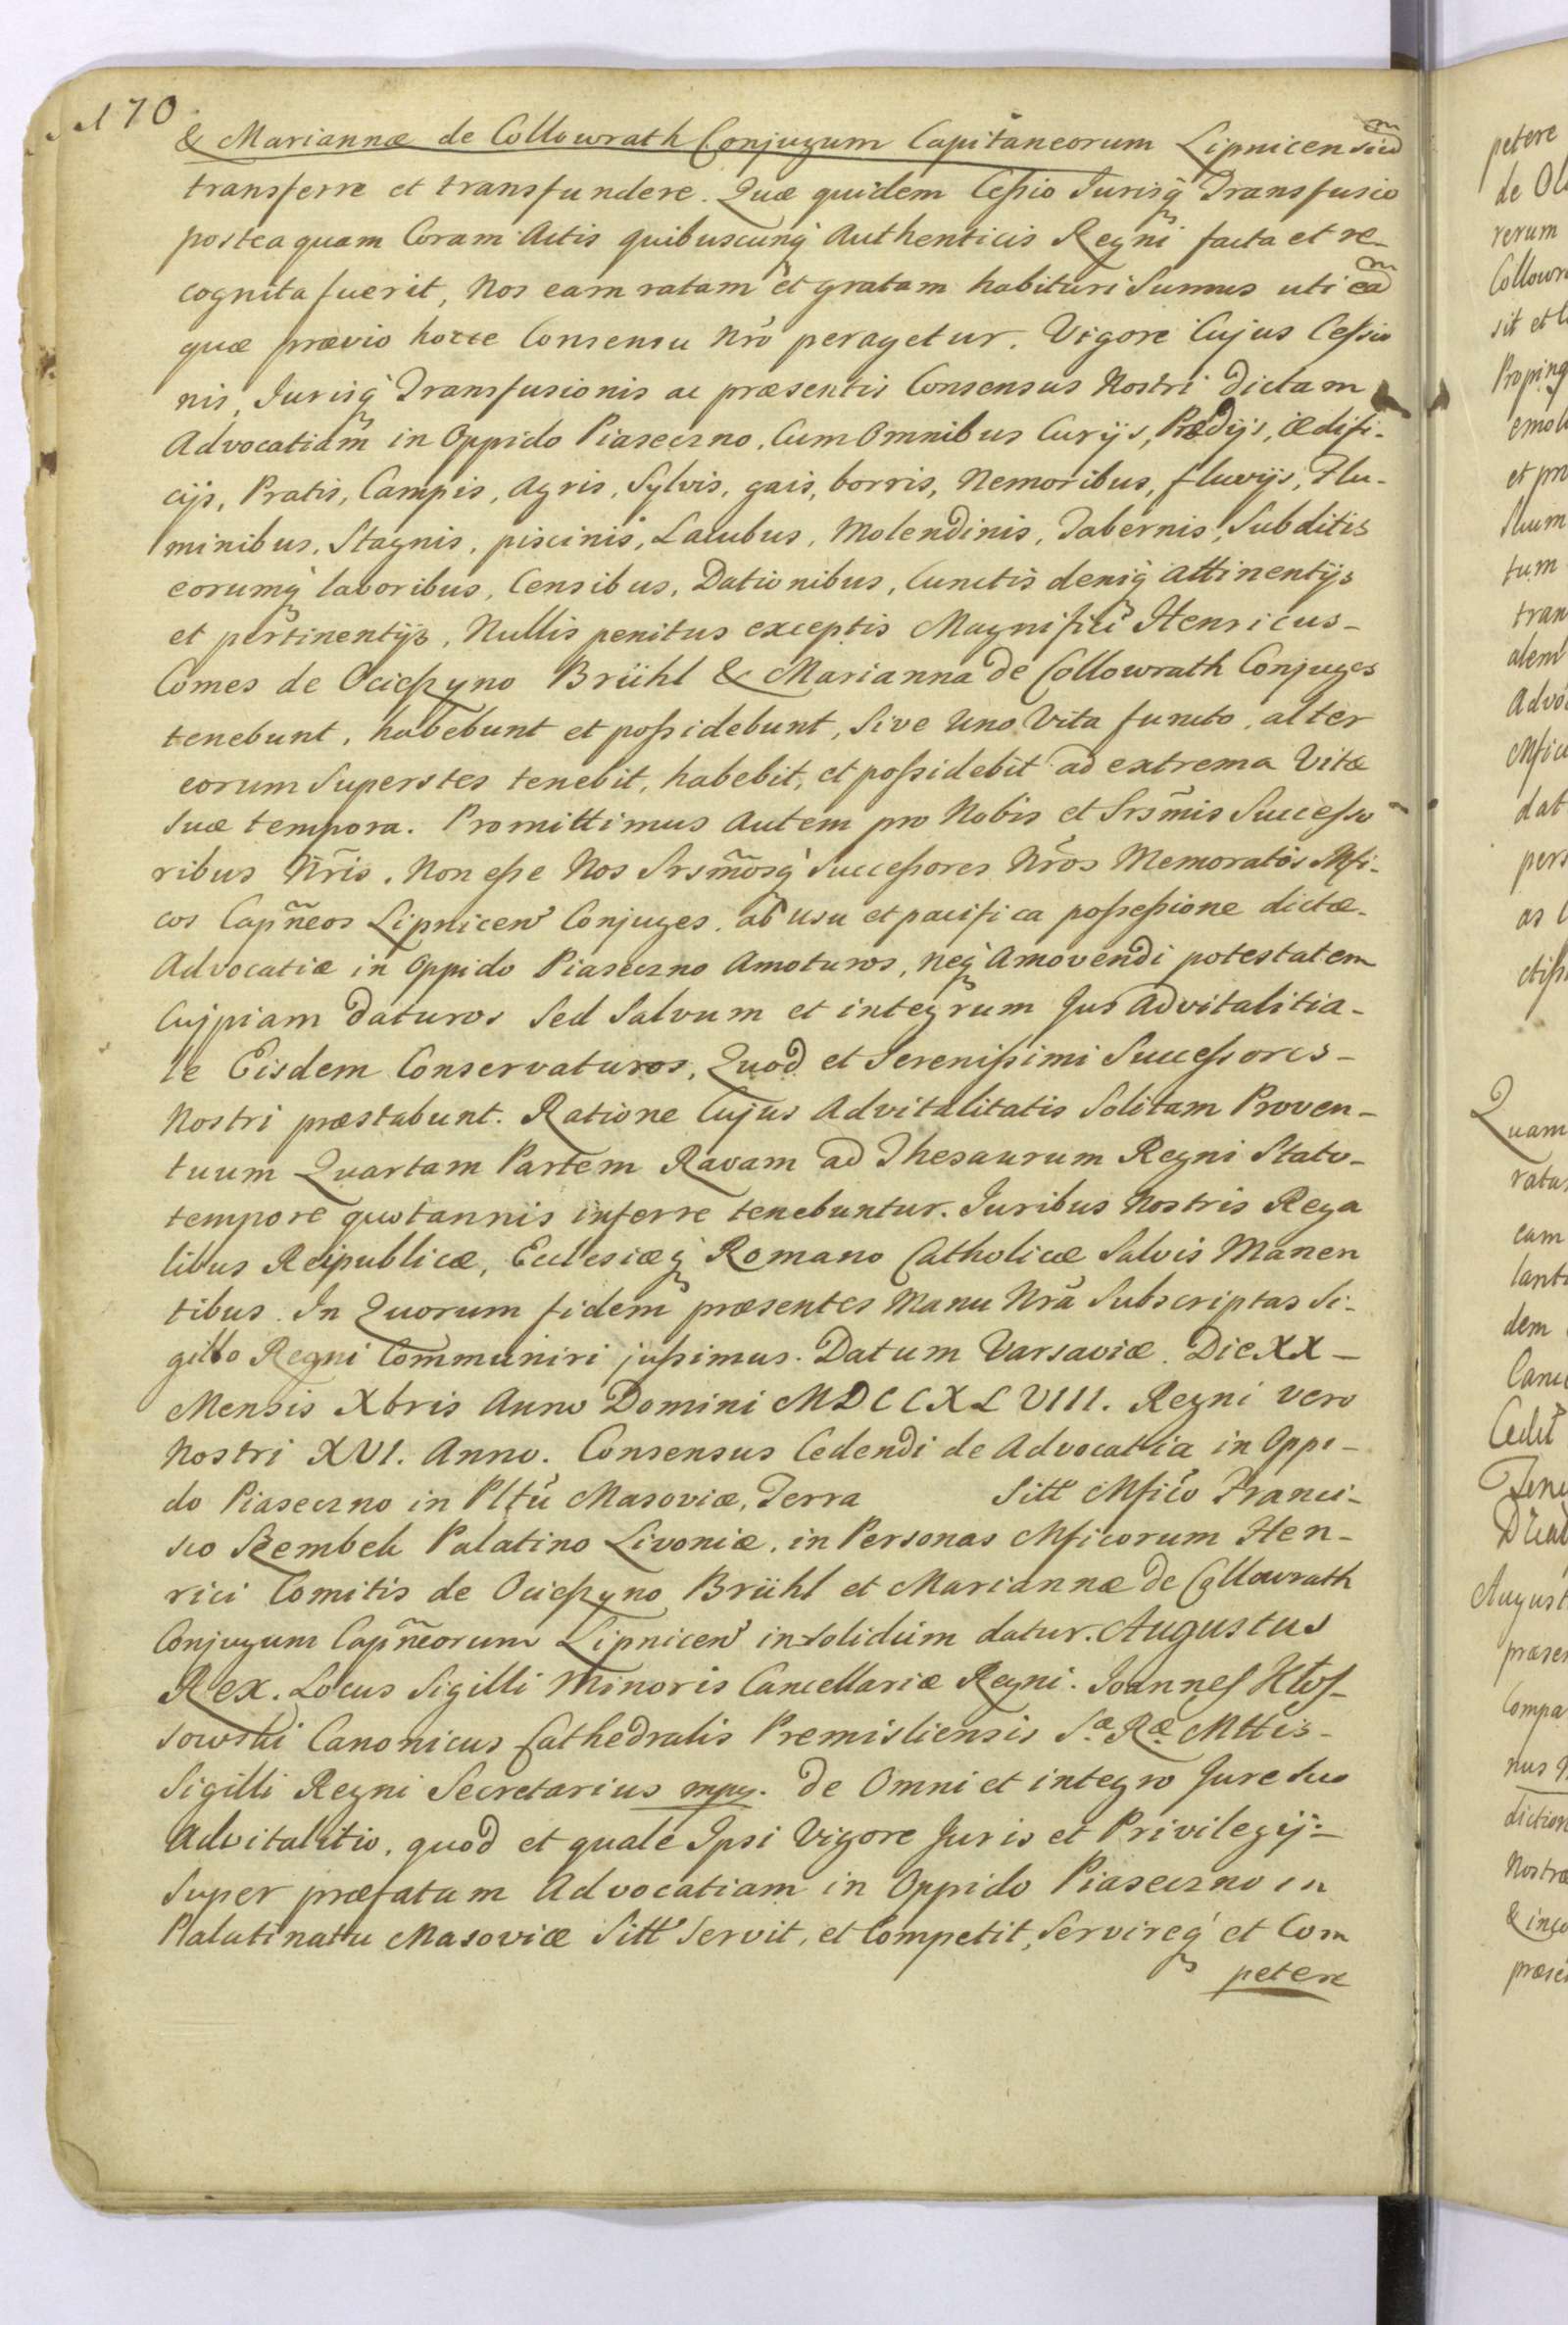 170
& Mariannæ de Collowrath Conjugum Capitaneorum Lipnicensium
transferre et transfundere. Quæ quidem Cessio Jurisq́ Transfusio
postea quam Coram Actis quibuscunq́ Authenticis Regni facta et re-
cognita fuerit, Nos eam ratam et gratam habituri Sumus uti eam
quæ prævio hocce Consensu Nrõ peragetur. Vigore Cujus Cessio
nis, Jurisq́ Transfusionis ac præsentis Consensus Nostri dictam
Advocatiam in Oppido Piaseczno, Cum Omnibus Curijs, Prædijs, ædifi-
cijs, Pratis, Campis, Agris, Sylvis, gais, borris, Nemoribus, fluvijs, Flu-
minibus, Stagnis, piscinis, Lacubus, Molendinis, Tabernis, Subditis
eorumq́ laboribus, Censibus, Dationibus, Cunctis deniq́ attinentijs
et pertinentijs, Nullis penitus exceptis Magnifici Henricus-
Comes de Ocieszyno Brühl & Marianna de Collowrath Conjuges
tenebunt, habebunt et possidebunt, Sive Uno Vita functo, alter
eorum Superstes tenebit, habebit, et possidebit ad extrema Vitæ
Suæ tempora. Promittimus Autem pro Nobis et Srsm̃is Successo
ribus Nr̃is, Non esse Nos Srsm̃osq́ Successores Nr̃os Memoratos Mfi-
cos Capñeos Lipnicen Conjuges, ab usu et pacifica possessione dictæ-
Advocatiæ in Oppido Piaseczno Amoturos, neq́ Amovendi potestatem
Cujpiam daturos Sed Salvum et integrum Jus Advitalitia-
le Eisdem Conservaturos, Quod et Serenissimi Successores-
Nostri præstabunt. Ratione Cujus Advitalitatis Solitam Proven-
tuum Quartam Partem Ravam ad Thesaurum Regni Stato-
tempore quotannis inferre tenebuntur. Juribus Nostris Rega
libus Reipublicæ, Ecclesiæq́ Romano Catholicæ Salvis Manen
tibus. In Quorum fidem præsentes Manu Nrã Subscriptas Si-
gillo Regni Communiri jussimus. Datum Varsaviæ. Die XX-
Mensis Xbris Anno Domini MDCCXLVIII. Regni vero
Nostri XVI. Anno. Consensus Cedendi de Advocatia in Oppi-
do Piaseczno in Pltũ Masoviæ, Terra Sitt Mfićo Franci-
sco Szembek Palatino Livoniæ, in Personas Mficorum Hen-
rici Comitis de Ocieszyno Brühl et Mariannæ de Collowrath
Conjugum Capñeorum Lipnicen in solidum datur. Augustus
Rex. Locus Sigilli Minoris Cancellariæ Regni. Joannes Kłos-
sowski Canonicus Cathedralis Premisliensis Sæ Ræ Mttis-
Sigilli Regni Secretarius mpp. de Omni et integro Jure Suo
Advitalitio, quod et quale Ipsi Vigore Juris et Privilegij-
Super præfatam Advocatiam in Oppido Piaseczno in
Palatinatu Masoviæ Sitt Servit, et Competit, Servireq́ et Com
petere
petere
rerum
sit et
emol
et pro
tum
tran
alem
Advo
dat
pers
as
Quam
ratam
eam
dem
Cedit
August
præsen
Compa
nus
diction
Nostræ